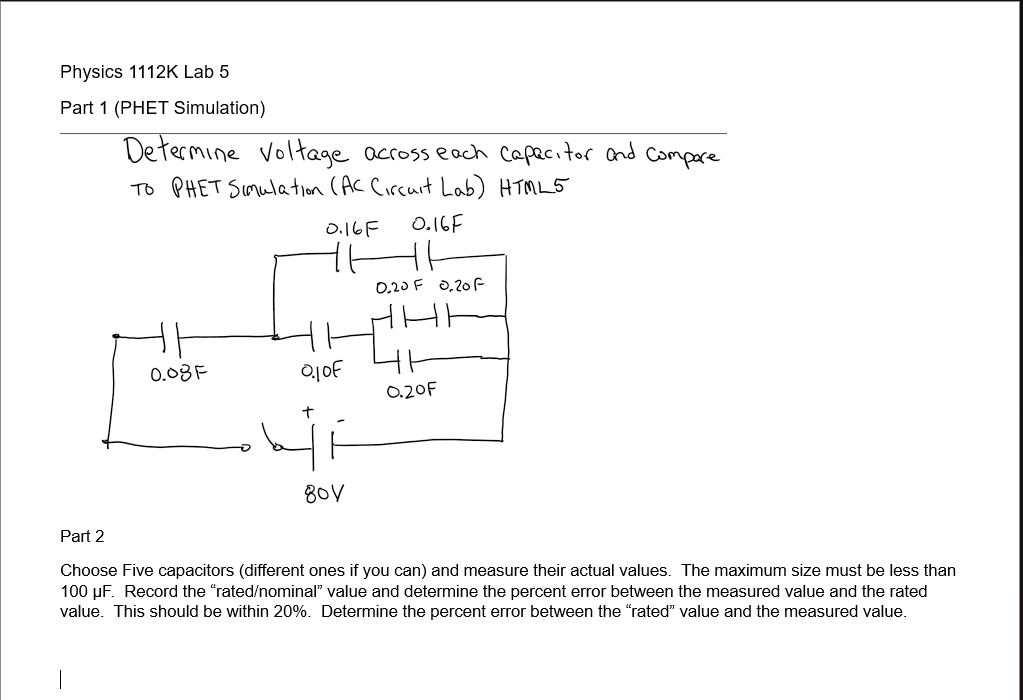 Physics 1112K Lab 5
Part 1 (PHET Simulation)
Determine Voltage across each capacitor and compare
To PHET Simulation (AC Circuit Lab) HTML5
0.16F 0.16F
0.20F 0.20F
0.08F 0.10F
0.20F
+ -
80V
Part 2
Choose Five capacitors (different ones if you can) and measure their actual values. The maximum size must be less than
100 µF. Record the “rated/nominal” value and determine the percent error between the measured value and the rated
value. This should be within 20%. Determine the percent error between the “rated” value and the measured value.